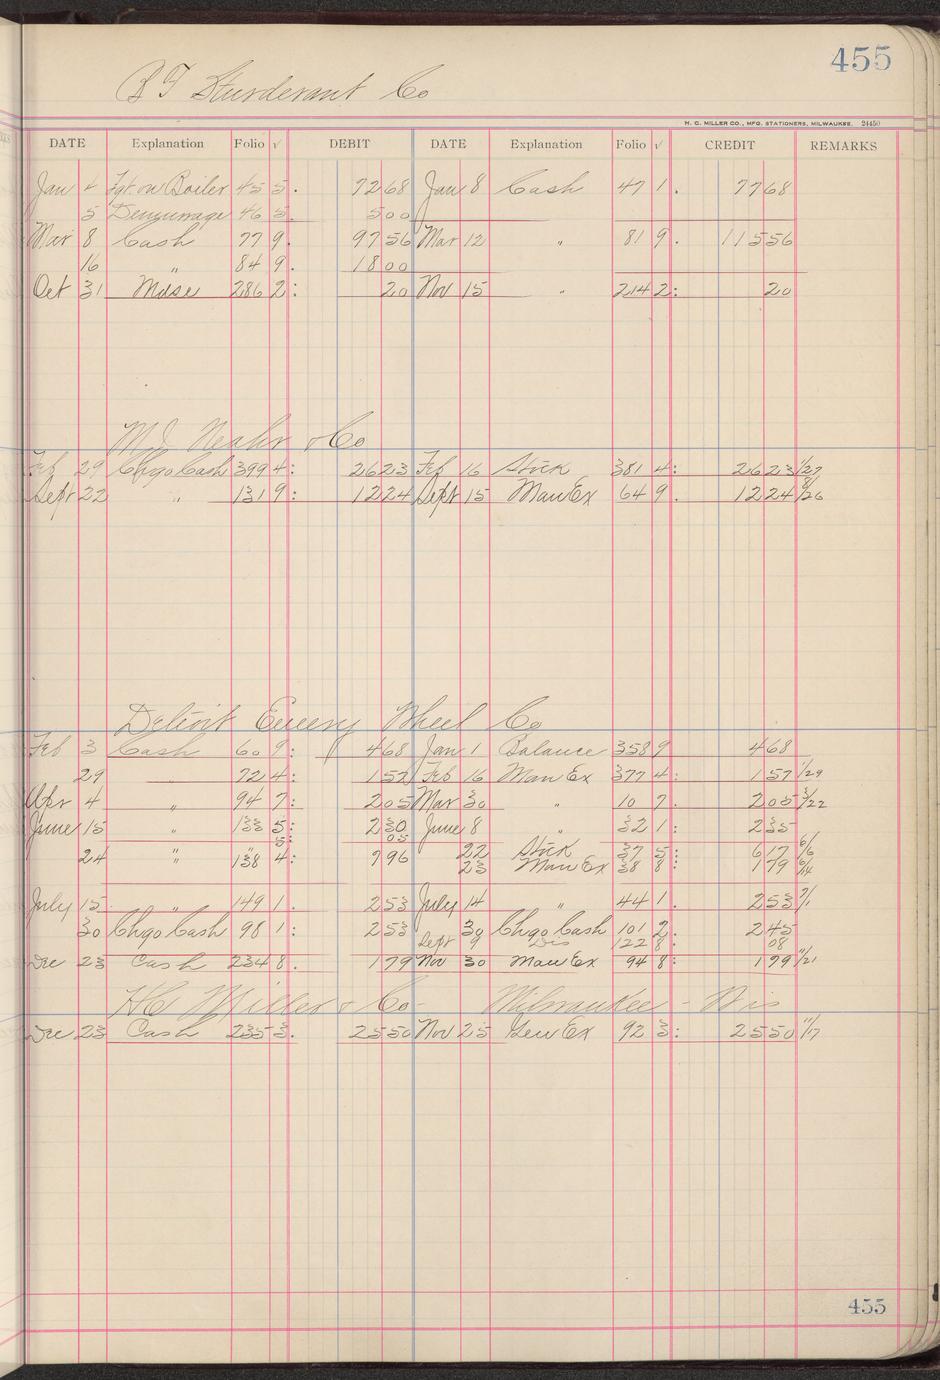 455
B F Sturdevant Co
H. C. MILLER CO., MFG. STATIONERS, MILWAUKEE. 24450
DATE Explanation Folio √ DEBIT DATE Explanation Folio √ CREDIT REMARKS
Jan 4 Fgt on Boiler 45 5. 72 68 Jan 8 Cash 47 1. 77 68
5 Demurrage 46 5. 5 00
Mar 8 Cash 77 9. 97 56 Mar 12 " 81 9. 115 56
16 " 84 9. 18 00
Oct 31 Mdse 286 2: 20 Nov 15 " 214 2: 20
M J Neahr & Co
Feb 29 Chgo Cash 399 4: 26 23 Feb 16 Stock 381 4: 26 23 1/27
Sept 22 " 131 9: 12 24 Sept 15 Man Ex 64 9. 12 24 8/26
Detroit Emery Wheel Co
Feb 3 Cash 60 9: 4 68 Jan 1 Balance 358 9 4 68
29 " 72 4: 1 57 Feb 16 Man Ex 377 4: 1 57 1/29
Apr 4 " 94 7: 2 05 Mar 30 " 10 7. 2 05 3/22
June 15 " 133 5: 2 30 June 8 " 32 1: 2 35
" 5: 05
24 " 138 4: 7 96 22 Stock 37 5: 6 17 6/6
23 Man Ex 38 8: 1 79 6/14
July 15 " 149 1. 2 53 July 14 " 44 1. 2 53 7/1
30 Chgo Cash 98 1: 2 53 30 Chgo Cash 101 2. 2 45
Sept 9 Dis 122 8: 08
Dec 23 Cash 234 8. 1 79 Nov 30 Man Ex 94 8: 1 79 11/21
H C Miller & Co - Milwaukee - Wis
Dec 23 Cash 235 3. 25 50 Nov 25 Gen Ex 92 3: 25 50 11/17
455